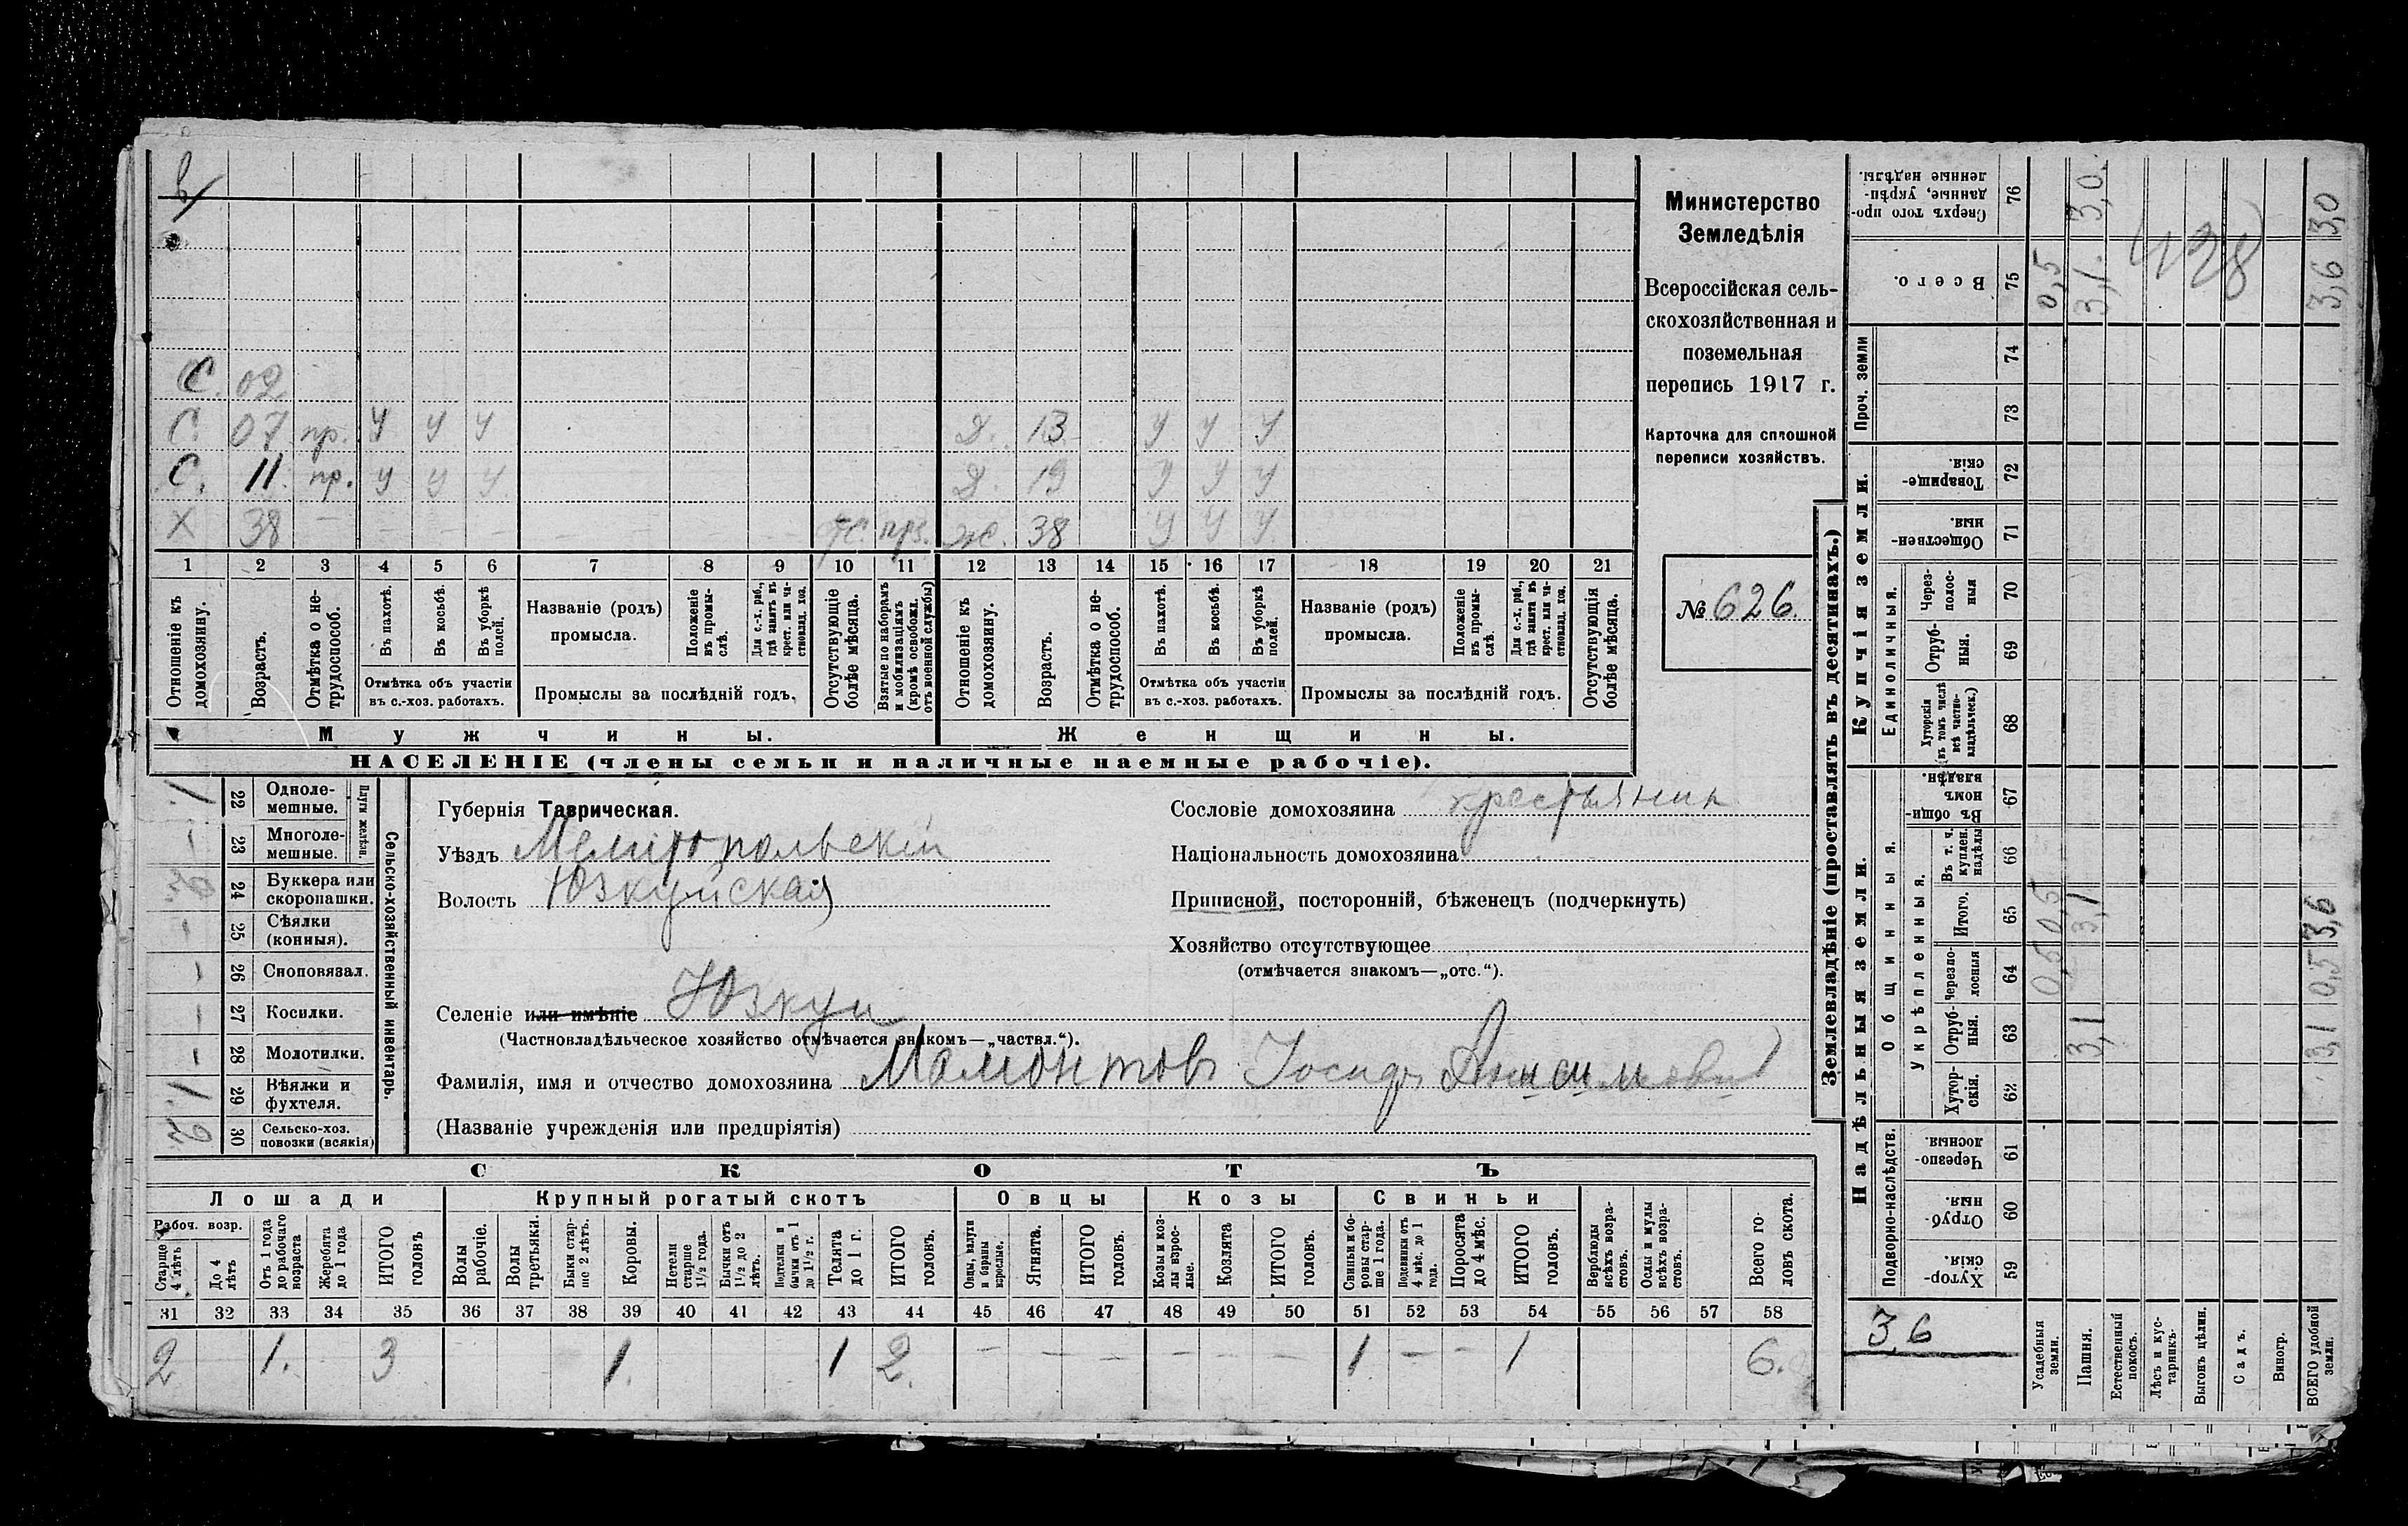 С. 02
С. 07 пр. у у у Д. 13 у у у
С. 11 пр. у у у Д. 19 у у у
Х 38 — — — — — — — ж. 38 у у у
1 2 3 4 5 6 7 8 9 10 11 12 13 14 15 16 17 18 19 20 21
Отношеніе къ домохозяину.
Возрастъ.
Отмѣтка о нетрудоспособ.
Въ пахотѣ.
Въ косьбѣ.
Въ уборкѣ полей.
Отмѣтка объ участіи въ с.-хоз. работахъ.
Названіе (родъ) промысла.
Положеніе въ промыслѣ.
Для с.-х. раб., гдѣ занятъ въ крест. или частновлад. хоз.
Промыслы за послѣдній годъ.
Отсутствующіе болѣе мѣсяца.
Взятые по наборамъ и мобилизаціямъ (кромѣ освобожд. отъ военной службы)
Отношеніе къ домохозяину.
Возрастъ.
Отмѣтка о нетрудоспособ.
Въ пахотѣ.
Въ косьбѣ.
Въ уборкѣ полей.
Отмѣтка объ участіи въ с.-хоз. работахъ.
Названіе (родъ) промысла.
Положеніе въ промыслѣ.
Для с.-х. раб., гдѣ занята въ крест. или частновлад. хоз.
Промыслы за послѣдній годъ.
Отсутствующія болѣе мѣсяца.
Мужчины.
Женщины.
НАСЕЛЕНІЕ (члены семьи и наличные наемные рабочіе).
Министерство
Земледѣлія
Всероссійская сель-
скохозяйственная и
поземельная
перепись 1917 г.
Карточка для сплошной
переписи хозяйствъ.
№ 626.
Сельско-хозяйственный инвентарь.
Плуги желѣзн.
22 Однолемешные. 1
23 Многолемешные. —
24 Буккера или скоропашки.
25 Сѣялки (конныя). —
26 Сноповязал. —
27 Косилки. —
28 Молотилки. —
29 Вѣялки и фухтеля. 1
30 Сельско-хоз. повозки (всякія) 2
Губернія Таврическая.
Уѣздъ Мелитопольскій
Волость Юзкуйская
Селеніе или имѣніе Юзкуи
(Частновладѣльческое хозяйство отмѣчается знакомъ—„частвл.“).
Фамилія, имя и отчество домохозяина Мамонтов Иосиф Анисимович
(Названіе учрежденія или предпріятія)
Сословіе домохозяина крестьянин
Національность домохозяина
Приписной, посторонній, бѣженецъ (подчеркнуть)
Хозяйство отсутствующее
(отмѣчается знакомъ—„отс.“).
СКОТЪ
Лошади
Крупный рогатый скотъ
Овцы
Козы
Свиньи
Рабоч. возр.
Старше 4 лѣтъ
До 4 лѣтъ
Отъ 1 года до рабочаго возраста
Жеребята до 1 года
ИТОГО головъ
Волы рабочіе.
Волы третьяки.
Быки старше 2 лѣтъ.
Коровы.
Нетели старше 1½ года.
Бычки отъ 1½ до 2 лѣтъ.
Подтелки и бычки отъ 1 до 1½ г.
Телята до 1 г.
ИТОГО головъ.
Овцы, валухи и бараны взрослые.
Ягнята.
ИТОГО головъ.
Козы и козлы взрослые.
Козлята
ИТОГО головъ.
Свиньи и боровы старше 1 года.
Подсвинки отъ 4 мѣс. до 1 года.
Поросята до 4 мѣс.
ИТОГО головъ.
Верблюды всѣхъ возрастовъ.
Ослы и мулы всѣхъ возрастовъ.
Всего головъ скота.
31 32 33 34 35 36 37 38 39 40 41 42 43 44 45 46 47 48 49 50 51 52 53 54 55 56 57 58
2 1. 3 1. 1 2. — — — — — — 1 — — 1 6.
Землевладѣніе (проставлять въ десятинахъ.)
Надѣльныя земли.
Купчія земли.
Проч. земли
Подворно-наслѣдств.
Общинныя.
Укрѣпленныя.
Единоличныя.
59 Хуторскія.
60 Отрубныя.
61 Черезполосныя.
62 Хуторскія.
63 Отрубныя. 3,1 3,1
64 Черезполосныя 0,5 0,5
65 Итого. 0,5 3,1 3,6
66 Въ т. ч. куплен. надѣлы
67 Въ общинномъ владѣн.
68 Хуторскія (въ томъ числѣ всѣ частновладѣльческ.)
69 Отрубныя.
70 Черезполосныя
71 Общественныя.
72 Товарищескія.
73
74
75 Всего. 0,5 3,1 3,6
76 Сверхъ того проданные, укрѣпленные надѣлы. 3,0 3,0
428
3,6
Усадебныя земли.
Пашня.
Естественный покосъ.
Лѣсъ и кустарникъ.
Выгонъ цѣлин.
Садъ.
Виногр.
ВСЕГО удобной земли.